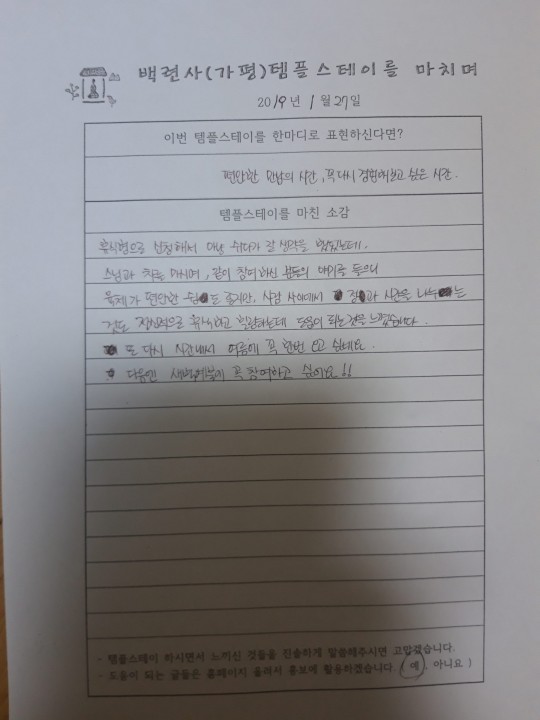 백련사(가평)템플스테이를 마치며
2019년 1월 27일
이번 템플스테이를 한마디로 표현하신다면?
편안한 만남의 시간, 꼭 다시 경험해보고 싶은 시간.
템플스테이를 마친 소감
휴식형으로 신청해서 마냥 쉬다가 갈 생각을 했었는데.
스님과 차를 마시며, 같이 참여하신 분들의 얘기를 들으니
육체가 편안한 쉼도 좋지만, 사람 사이에서 정과 시간을 나누는
것도 정신적으로 휴식하고 힐링하는데 도움이 되는 것을 느꼈습니다.
또 다시 시간내서 여름에 꼭 한번 오고 싶네요.
다음엔 새벽예불에 꼭 참여하고 싶어요!!
- 템플스테이 하시면서 느끼신 것들을 진솔하게 말씀해주시면 고맙겠습니다.
- 도움이 되는 글들은 홈페이지 올려서 홍보에 활용하겠습니다. ( 예 , 아니요 )